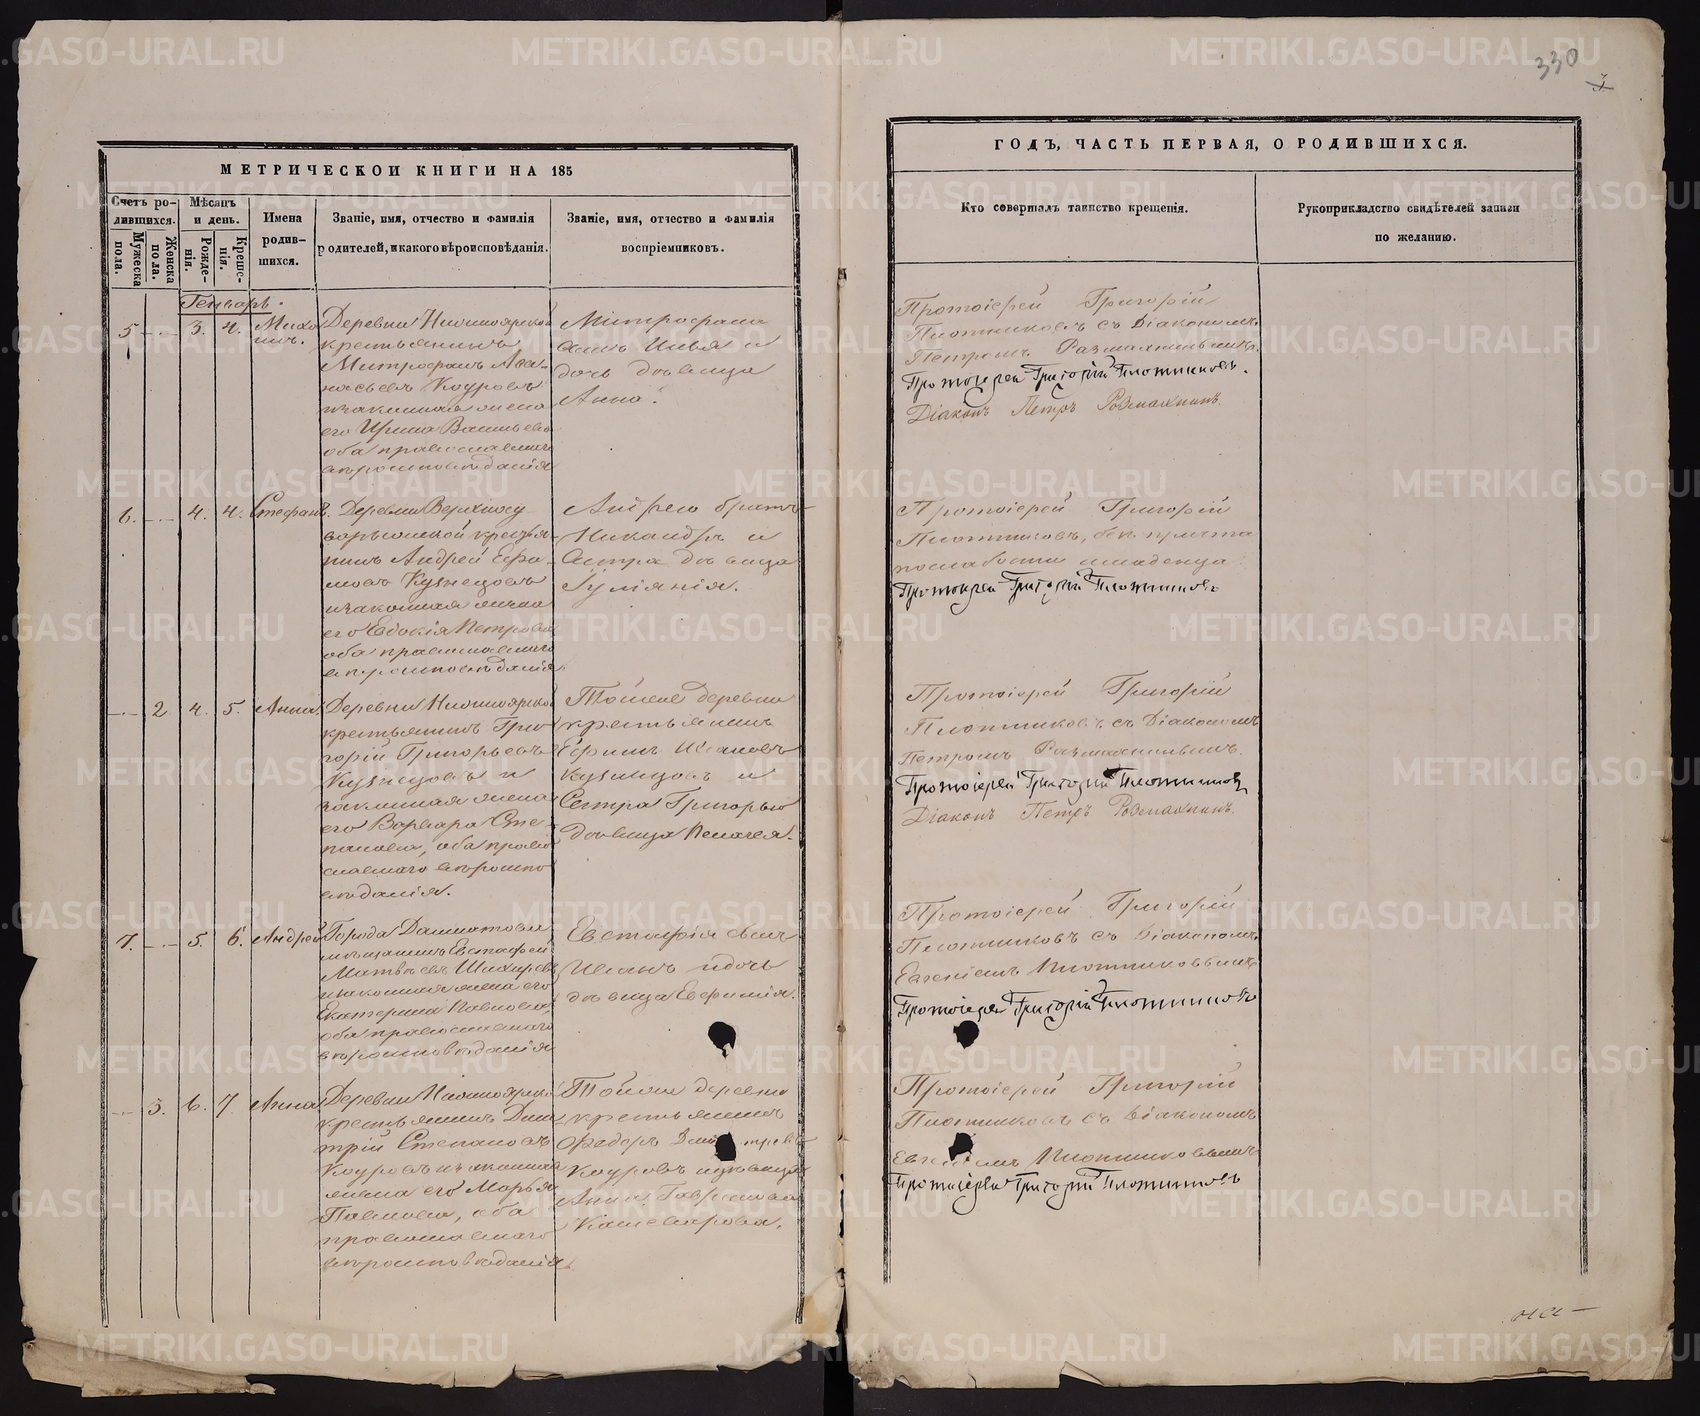 330
МЕТРИЧЕСКОИ КНИГИ НА 185
Счетъ ро-
дившихся.
Мужеска
пола.
Женска
пола.
Мѣсяцъ
и день.
Рожде-
нія.
Креще-
нія.
Имена
родив-
шихся.
Званіе, имя, отчество и фамилія
родителей, и какого вѣроисповѣданія.
Званіе, имя, отчество и фамилія
воспріемниковъ.
Генварь.
5 3. 4.
Деревни
крестьянинъ
Митрофанъ Аѳа-
насьевъ Коуровъ
и законная жена
его Ирина Васильева
оба православнаго
вѣроисповѣданія
Митрофана
сынъ Илья и
дочь дѣвица
Анна.
6. 4. 4. Стефанъ.
Деревни
крестья-
нинъ Андрей Ефи-
мовъ Кузнецовъ
и законная жена
его Евдокія Петрова
оба православнаго
вѣроисповѣданія
Андрею братъ
Никандръ и
сестра дѣвица
Іуліанія.
2 4. 5. Анна.
Деревни
крестьянинъ Гри-
горій Григорьевъ
Кузнецовъ и
законная жена
его Варвара Сте-
панова, оба право-
славнаго вѣроиспо-
вѣданія.
Тойже деревни
крестьянинъ
Ефимъ Ивановъ
Кузнецовъ и
Сестра Григорью
дѣвица Пелагея.
7. 5. 6. Андрей
Города Далматова
мѣщанинъ Евстафей
Матвѣевъ
и законная жена его
Екатерина Павлова,
оба православнаго
вѣроисповѣданія
Евстафія сынъ
Иванъ и дочь
дѣвица Евфимія.
3. 6. 7. Анна
Деревни
крестьянинъ Дми-
трій Степановъ
Коуровъ и законная
жена его Марья
Павлова, оба
православнаго
вѣроисповѣданія.
Тойже деревни
крестьянинъ
Федоръ
Коуровъ и дѣвица
Анна Гаврилова
Кашеварова.
ГОДЪ, ЧАСТЬ ПЕРВАЯ, О РОДИВШИХСЯ.
Кто совершалъ таинство крещенія.
Рукоприкладство свидѣтелей записи
по желанію.
Протоіерей Григорій
Плотниковъ съ Діакономъ
Петромъ Размахнинымъ.
Протоіерей Григорій Плотниковъ.
Діаконъ Петръ Размахнинъ.
Протоіерей Григорій
Плотниковъ, безъ причта
по слабости младенца.
Протоіерей Григорій Плотниковъ
Протоіерей Григорій
Плотниковъ съ Діакономъ
Петромъ Размахнинымъ.
Протоіерей Григорій Плотниковъ
Діаконъ Петръ Размахнинъ.
Протоіерей Григорій
Плотниковъ съ Діакономъ
Евгеніемъ Плотниковымъ
Протоіерей Григорій Плотниковъ
Протоіерей Григорій
Плотниковъ съ Діакономъ
Евгеніемъ Плотниковымъ
Протоіерей Григорій Плотниковъ
METRIKI.GASO-URAL.RU